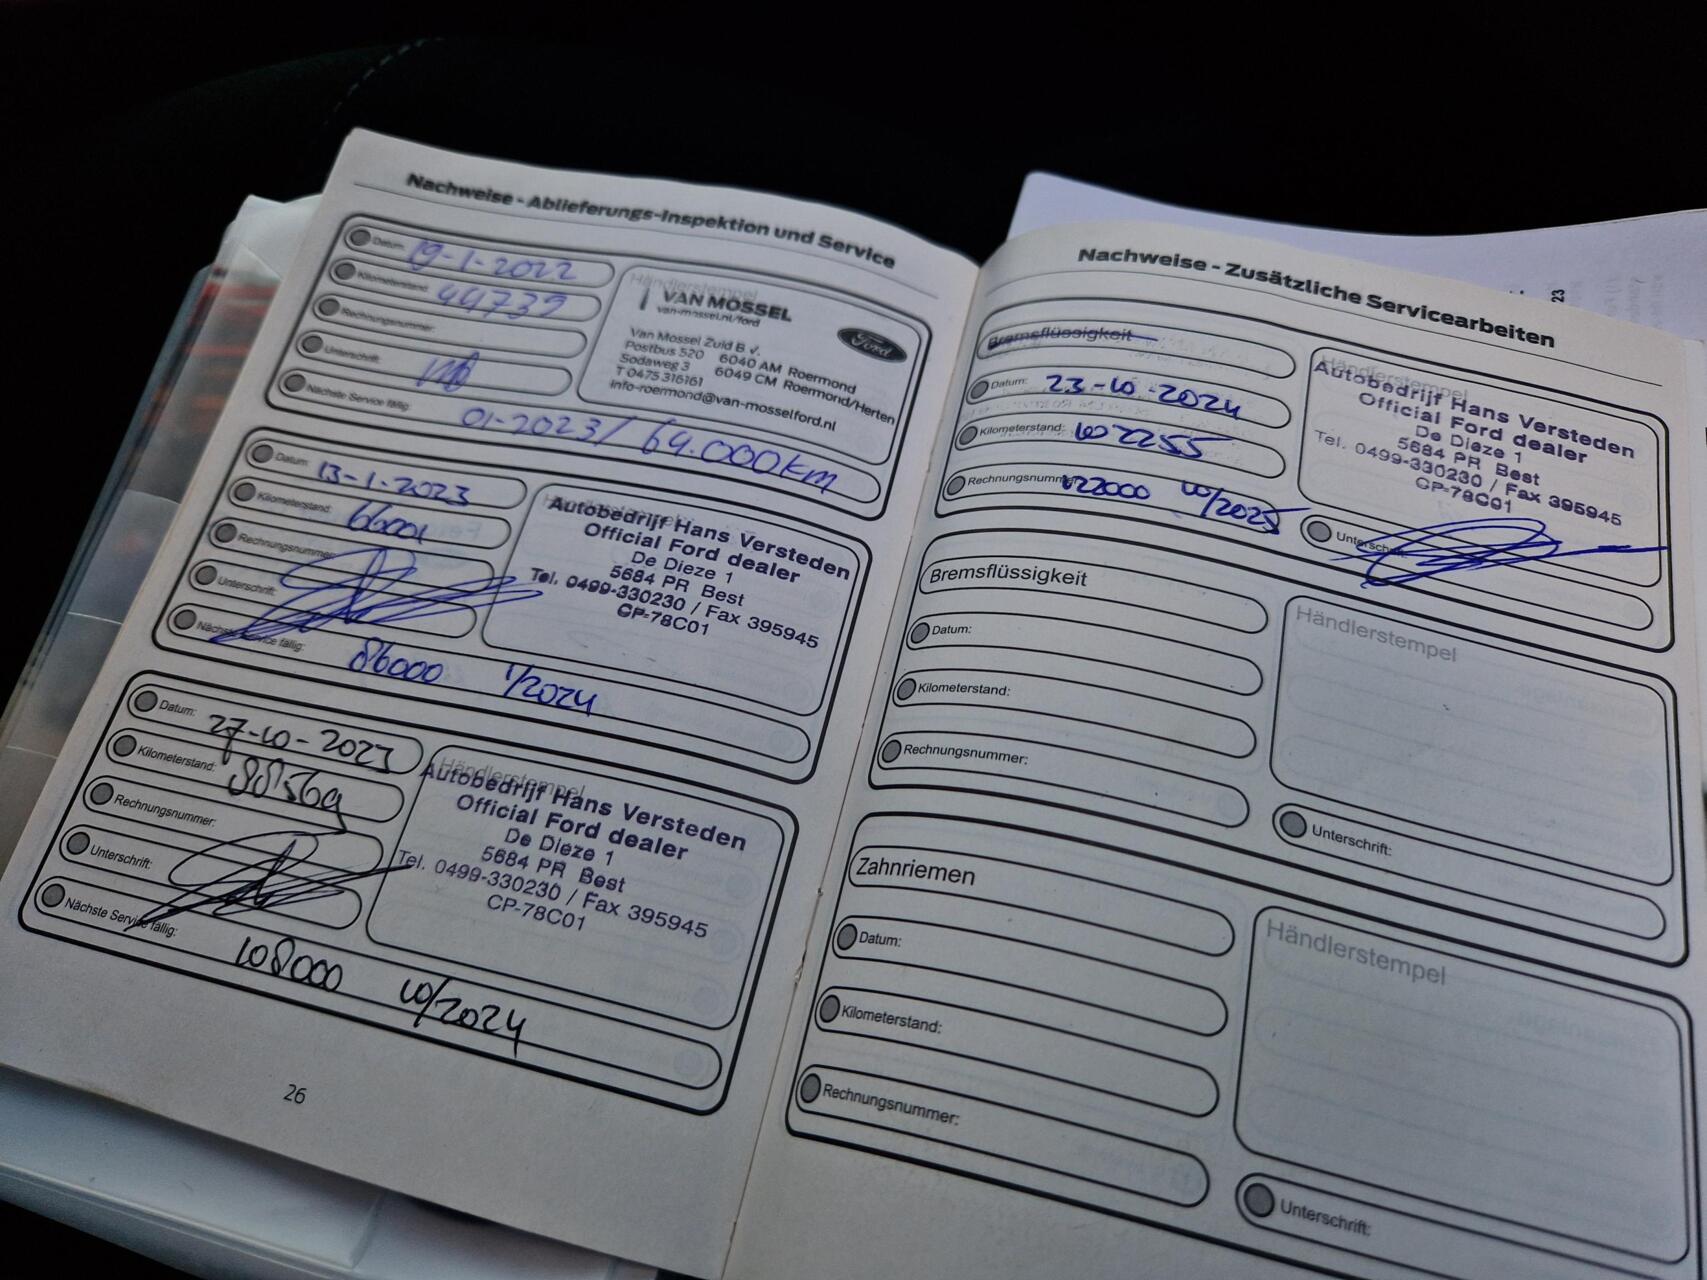 Nachweise - Ablieferungs-Inspektion und Service
Datum: 19-1-2022
Kilometerstand: 44739
Rechnungsnummer:
Unterschrift:
Nächste Service fällig: 01-2023/ 64.000km
Händlerstempel
VAN MOSSEL
van-mossel.nl/ford
Ford
Van Mossel Zuid B.V.
Postbus 520 6040 AM Roermond
Sodaweg 3 6049 CM Roermond/Herten
T 0475 316161
info-roermond@van-mosselford.nl
Datum: 13-1-2023
Kilometerstand: 66001
Rechnungsnummer:
Unterschrift:
Nächste Service fällig: 86000 1/2024
Autobedrijf Hans Versteden
Official Ford dealer
De Dieze 1
5684 PR Best
Tel. 0499-330230 / Fax 395945
CP-78C01
Datum: 27-10-2023
Kilometerstand: 88569
Rechnungsnummer:
Unterschrift:
Nächste Service fällig: 108000 10/2024
Händlerstempel
Autobedrijf Hans Versteden
Official Ford dealer
De Dieze 1
5684 PR Best
Tel. 0499-330230 / Fax 395945
CP-78C01
26
23
Nachweise - Zusätzliche Servicearbeiten
Bremsflüssigkeit
Datum: 23-10-2024
Kilometerstand: 102255
Rechnungsnummer: 122000 10/2025
Händlerstempel
Autobedrijf Hans Versteden
Official Ford dealer
De Dieze 1
5684 PR Best
Tel. 0499-330230 / Fax 395945
CP-78C01
Unterschrift:
Bremsflüssigkeit
Datum:
Kilometerstand:
Rechnungsnummer:
Händlerstempel
Unterschrift:
Zahnriemen
Datum:
Kilometerstand:
Rechnungsnummer:
Händlerstempel
Unterschrift: